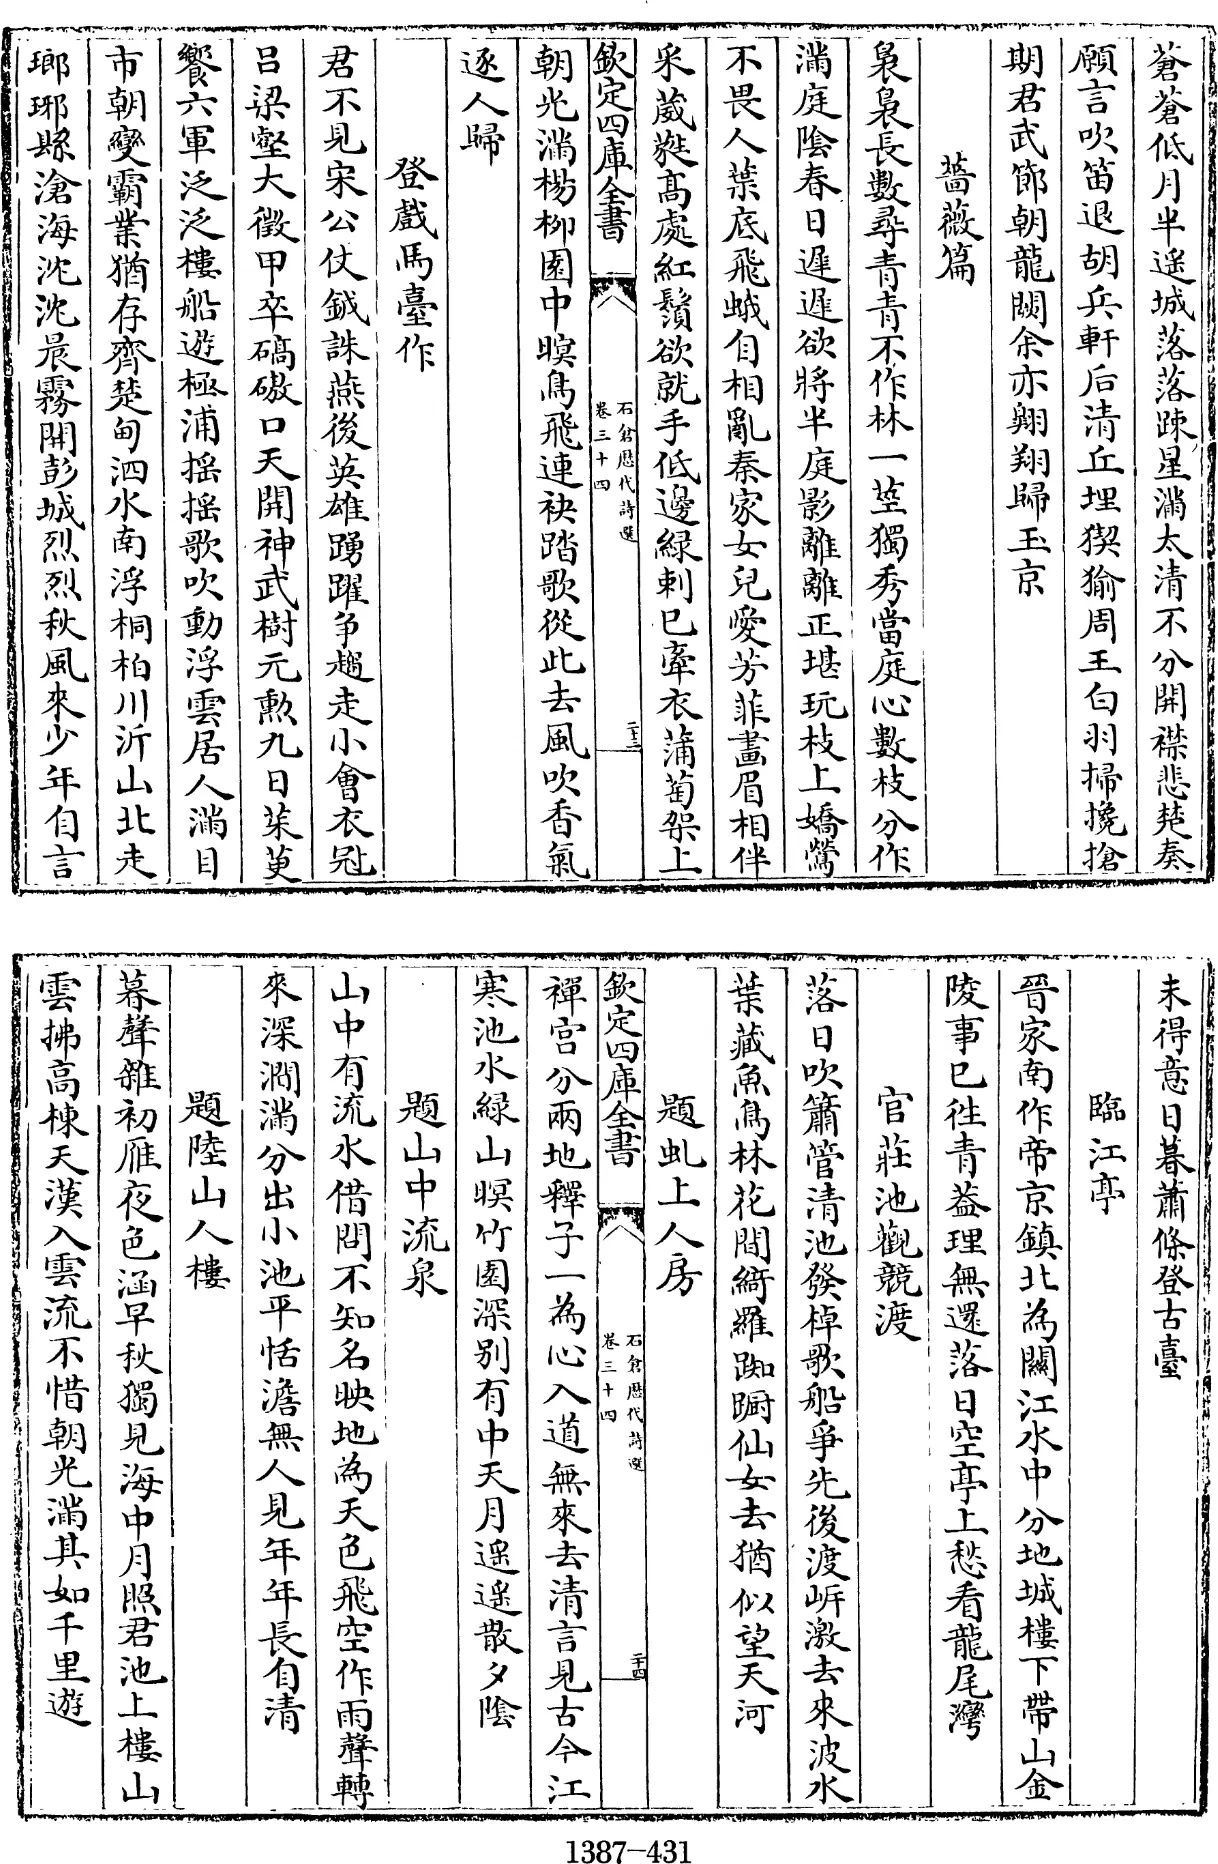 蒼蒼低月半遥城落落疎星滿太清不分開襟悲楚奏
願言吹笛退胡兵軒后清丘埋猰㺄周王白羽掃攙搶
期君武節朝龍闕余亦翺翔歸玉京
薔薇篇
裊裊長數尋青青不作林一莖獨秀當庭心數枝分作
滿庭陰春日遲遲欲將半庭影離離正堪玩枝上嬌鶯
不畏人葉底飛蛾自相亂秦家女兒愛芳菲畫眉相伴
采葳蕤髙處紅鬚欲就手低邊緑刺已牽衣蒲萄架上
欽定四庫全書
石倉歴代詩選
卷三十四
二十三
朝光滿楊柳園中暝鳥飛連袂踏歌從此去風吹香氣
逐人歸
登戲馬臺作
君不見宋公仗鉞誅燕後英雄踴躍爭趨走小會衣冠
吕梁壑大徵甲卒碻磝口天開神武樹元勲九日茱萸
饗六軍泛泛樓船遊極浦摇摇歌吹動浮雲居人滿目
市朝變霸業猶存齊楚甸泗水南浮桐柏川沂山北走
瑯琊縣滄海沈沈晨霧開彭城烈烈秋風來少年自言
未得意日暮蕭條登古臺
臨江亭
晉家南作帝京鎮北為關江水中分地城樓下帶山金
陵事已徃青葢理無還落日空亭上愁看龍尾灣
官莊池觀競渡
落日吹簫管清池發棹歌船爭先後渡岍激去來波水
葉藏魚鳥林花間綺羅踟蹰仙女去猶似望天河
題虬上人房
欽定四庫全書
石倉歴代詩選
卷三十四
二十四
禪宫分兩地釋子一為心入道無來去清言見古今江
寒池水緑山暝竹園深别有中天月遥遥散夕陰
題山中流泉
山中有流水借問不知名映地為天色飛空作雨聲轉
來深澗滿分出小池平恬澹無人見年年長自清
題陸山人樓
暮聲雜初雁夜色涵早秋獨見海中月照君池上樓山
雲拂高棟天漢入雲流不惜朝光滿其如千里遊
1387-431